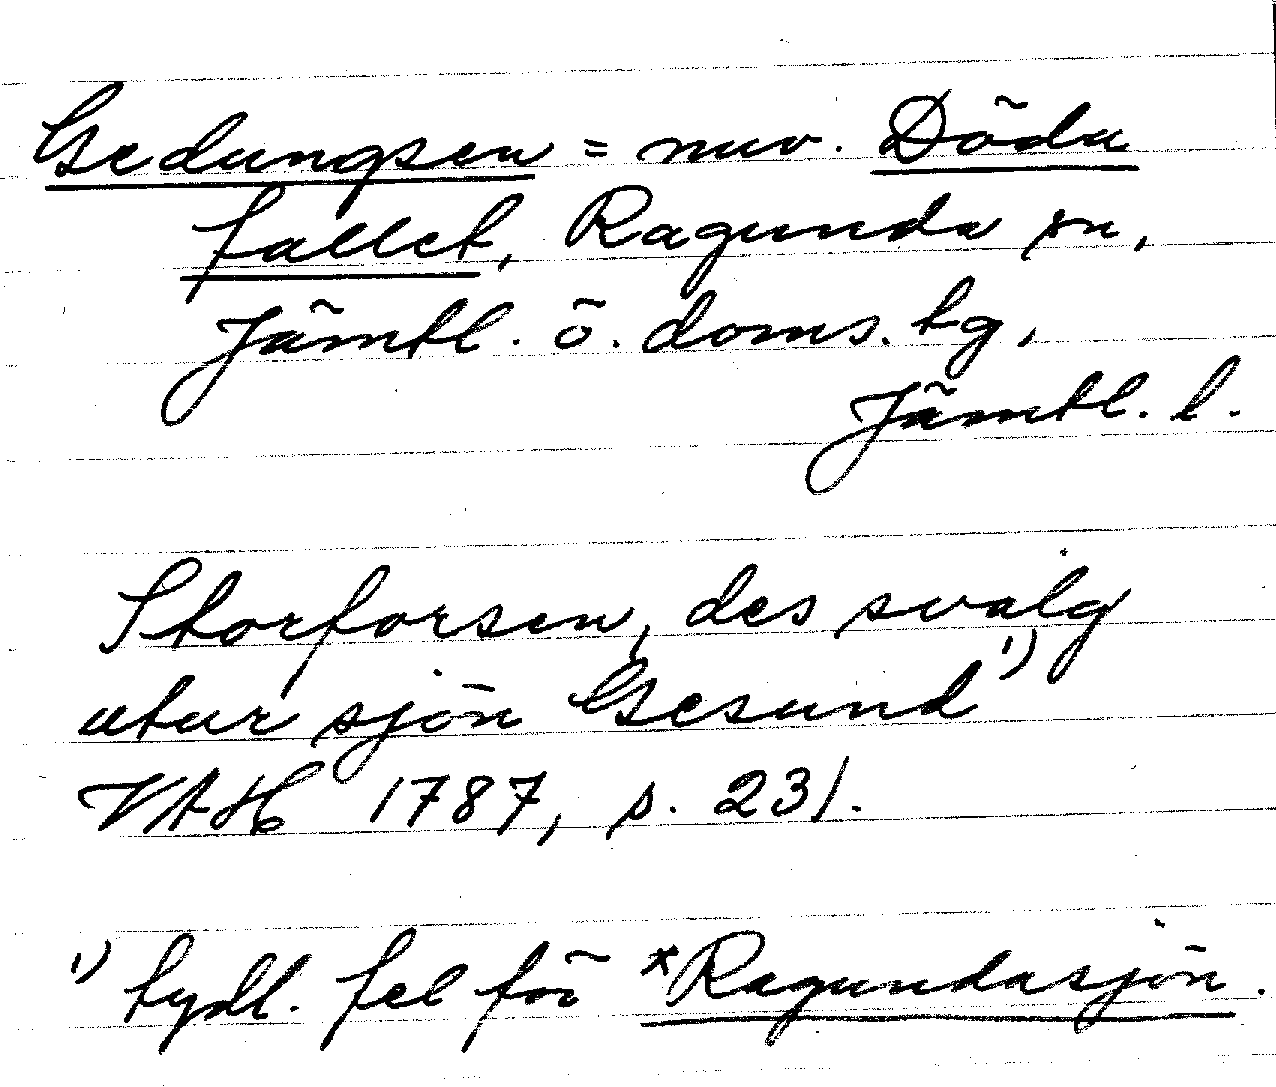 Gedungsen = nuv. Döda
fallet, Ragunda sn,
Jämtl. ö. doms. tg,
Jämtl. l.
Storforsen, des svalg
utur sjön Gesund ¹)
VAH 1787, s. 231.
¹) tydl. fel för *Ragundasjön.